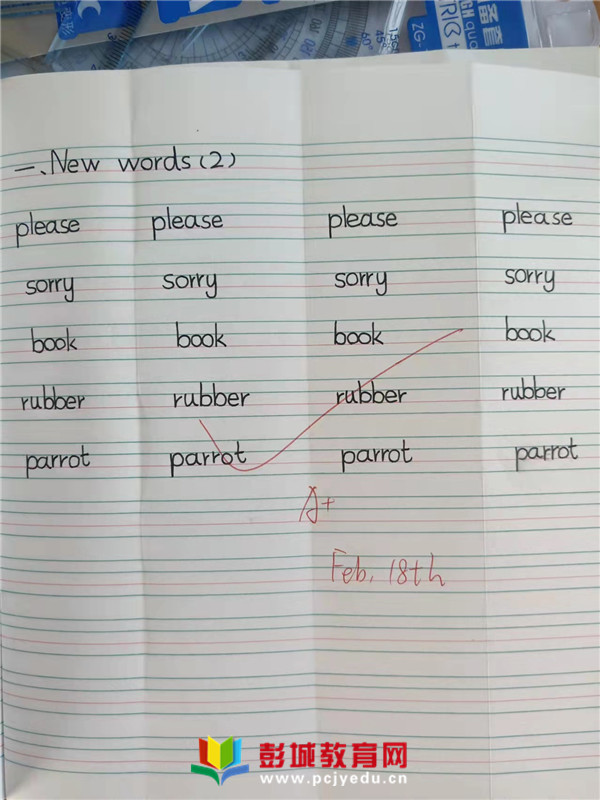 备套
GH qua
ZG-
一、New words(2)
please please please please
sorry sorry sorry sorry
book book book book
rubber rubber rubber rubber
parrot parrot parrot parrot
A+
Feb. 18th
彭城教育网
www.pcjyedu.cn